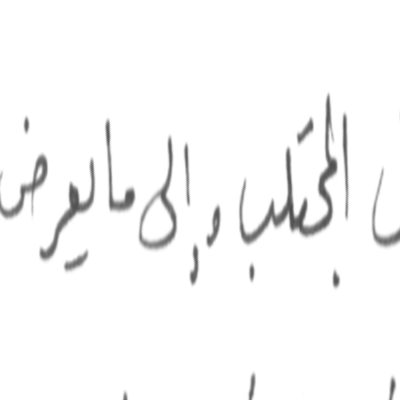 المجتلب وإلى ما يعرض